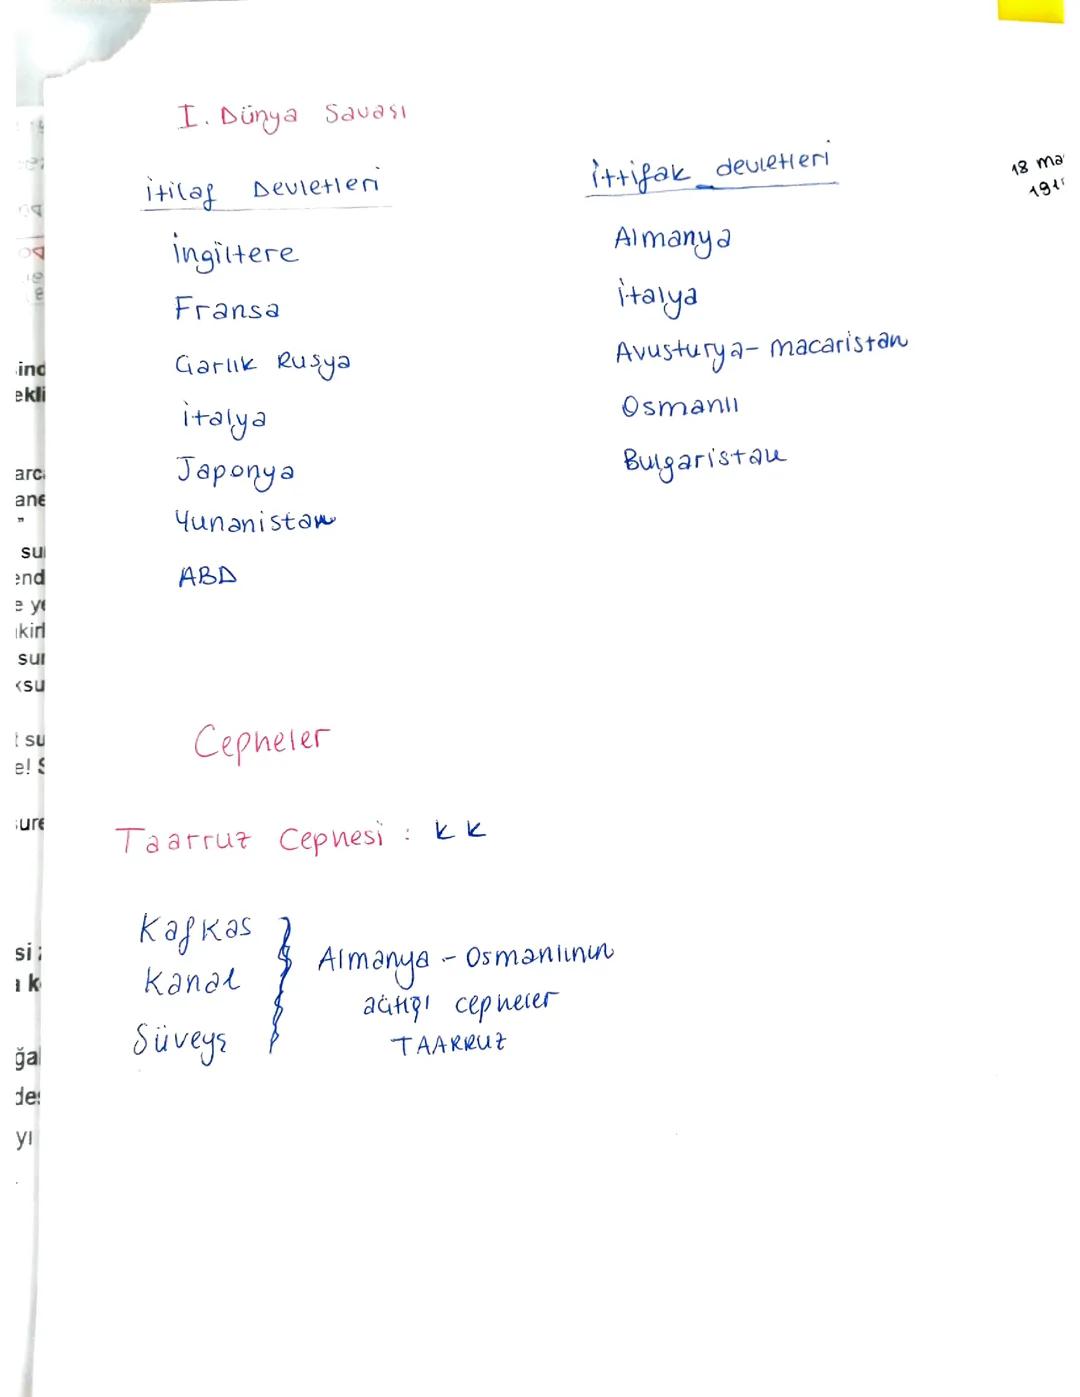 I. Dünya Savası
itilaf Devletleri
ingiltere
Fransa
Çarlık Rusya
italya
Japonya
Yunanistan
ABD
ittifak devletleri
Almanya
italya
Avusturya- macaristan
Osmanlı
Bulgaristan
18 ma
191
Cepheler
Taarruz Cephesi : K K
Kafkas
Kanal
Süveyş
Almanya - Osmanlının
açtığı cepheler
TAARRUZ
ind
ekli
arc
ane
"
su
end
e ye
kirl
sur
su
t su
e! S
ure
si
a k
ğal
deş
yı